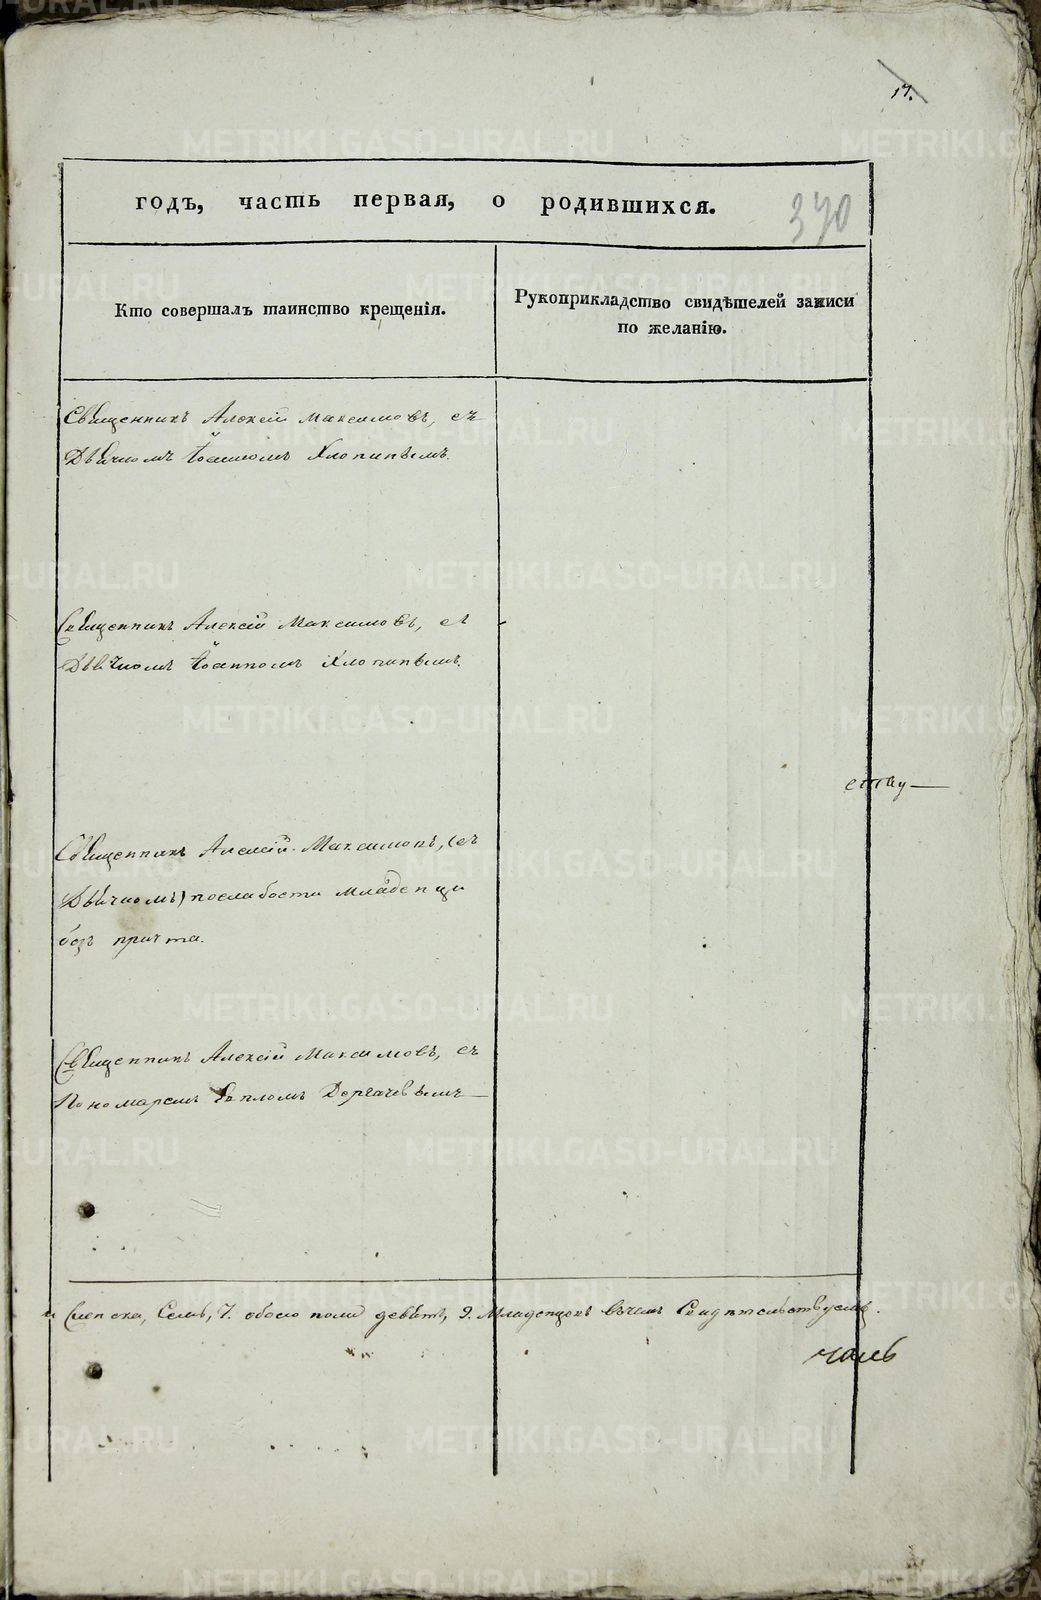 17.
годъ, часть первая, о родившихся.
370
Кто совершалъ таинство крещенія.
Рукоприкладство свидѣтелей записи
по желанію.
Священникъ Алексій Максимовъ, съ
Дьячкомъ Іоанномъ Хлопинымъ.
Священникъ Алексій Максимовъ, съ
Дьячкомъ Іоанномъ Хлопинымъ.
ству
Священникъ Алексій Максимовъ, (съ
Дьячкомъ) послабости младенца
безъ причта.
Священникъ Алексій Максимовъ, съ
Пономаремъ Дергачевымъ
и женска, Семь, 7. обоего пола девять, 9. Младенцовъ Въчемъ Свидѣтельствуемъ.
часть
METRIKI.GASO-URAL.RU